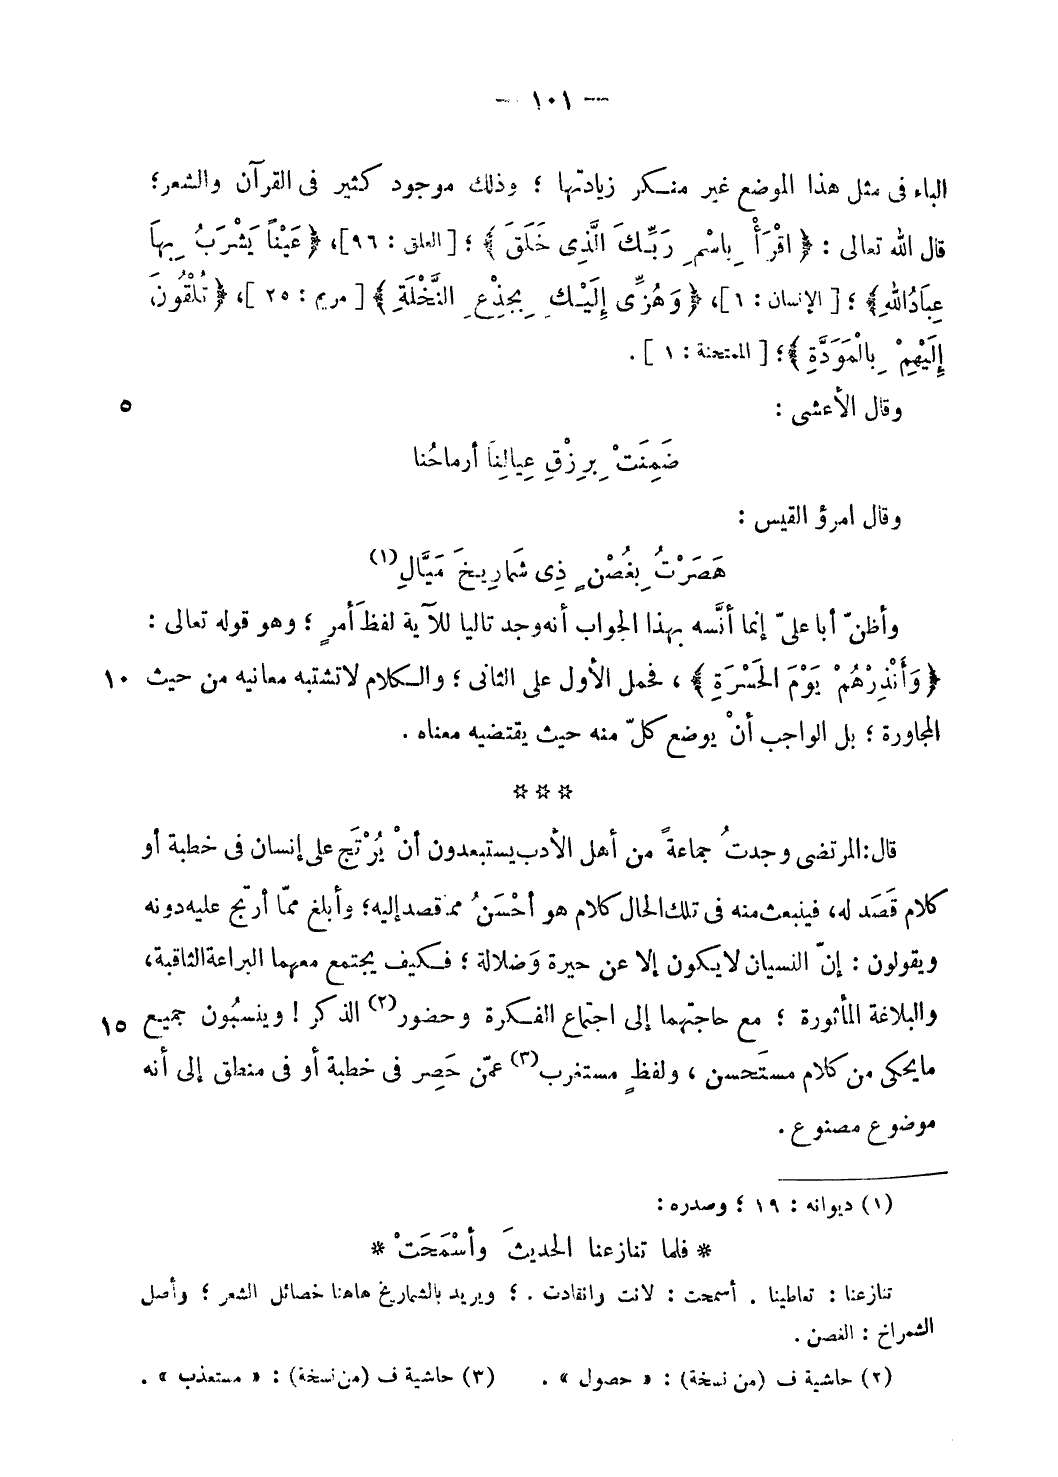 — ١٠١ —
الباء فى مثل هذا الموضع غير منكر زيادتها ؛ وذلك موجود كثير فى القرآن والشعر؛
قال الله تعالى : ﴿ اقْرَأْ بِاسْمِ رَبِّكَ الَّذِى خَلَقَ ﴾ ؛ [العلق : ٩٦]، ﴿ عَيْناً يَشْرَبُ بِهاَ
عِبَادُ اللهِ﴾ ؛ [ الإنسان : ٦ ]، ﴿ وَهُزِّى إِلَيْكِ بِجِذْعِ النَّخْلَةِ ﴾ [ مريم : ٢٥ ]، ﴿ تُلْقُونَ
إِلَيْهِمْ بِالْمَوَدَّةِ ﴾؛ [ الممتحنة : ١ ] .
وقال الأعشى : ٥
ضَمِنَتْ بِرِزْقِ عِيالِنَا أرماحُنا
وقال امرؤ القيس :
هَصَرْتُ بِغُصْنٍ ذِى شَمارِيخَ مَيَّالِ(١)
وأظنّ أبا علىّ إنما أنَّسه بهذا الجواب أنه وجد تاليا للآية لفظَ أمرٍ ؛ وهو قوله تعالى :
﴿ وَأَنْذِرْهُمْ يَوْمَ الْحَسْرَةِ ﴾ ، فحمل الأول على الثانى ؛ والكلام لا تشتبه معانيه من حيث ١٠
المجاورة ؛ بل الواجب أنْ يوضع كلّ منه حيث يقتضيه معناه .
☆ ☆ ☆
قال:المرتضى وجدتُ جماعةً من أهل الأدب يستبعدون أنْ يُرْتَج على إنسان فى خطبة أو
كلام قَصَد له، فينبعث منه فى تلك الحال كلام هو أحْسَنُ مما قصد إليه؛ وأبلغ ممّا أرتِج عليه دونه
ويقولون : إنّ النسيان لا يكون إلا عن حيرة وَضلالة ؛ فكيف يجتمع معهما البراعة الثاقبة،
والبلاغة المأثورة ؛ مع حاجتهما إلى اجتماع الفكرة وحضور(٢) الذكر ! وينسبُون جميع ١٥
ما يحكى من كلام مستَحسن ، ولفظٍ مستغرب(٣) عمّن حَصِر فى خطبة أو فى منطق إلى أنه
موضوع مصنوع .
(١) ديوانه : ١٩ ؛ وصدره :
* فلما تنازعنا الحديثَ وأسْمَحَتْ *
تنازعنا : تعاطينا . أسمحت : لانت وانقادت . ؛ ويريد بالشماريخ هاهنا خصائل الشعر ؛ وأصل
الشمراخ : الغصن .
(٢) حاشية ف (من نسخة) : « حصول » . (٣) حاشية ف (من نسخة) : « مستعذب » .